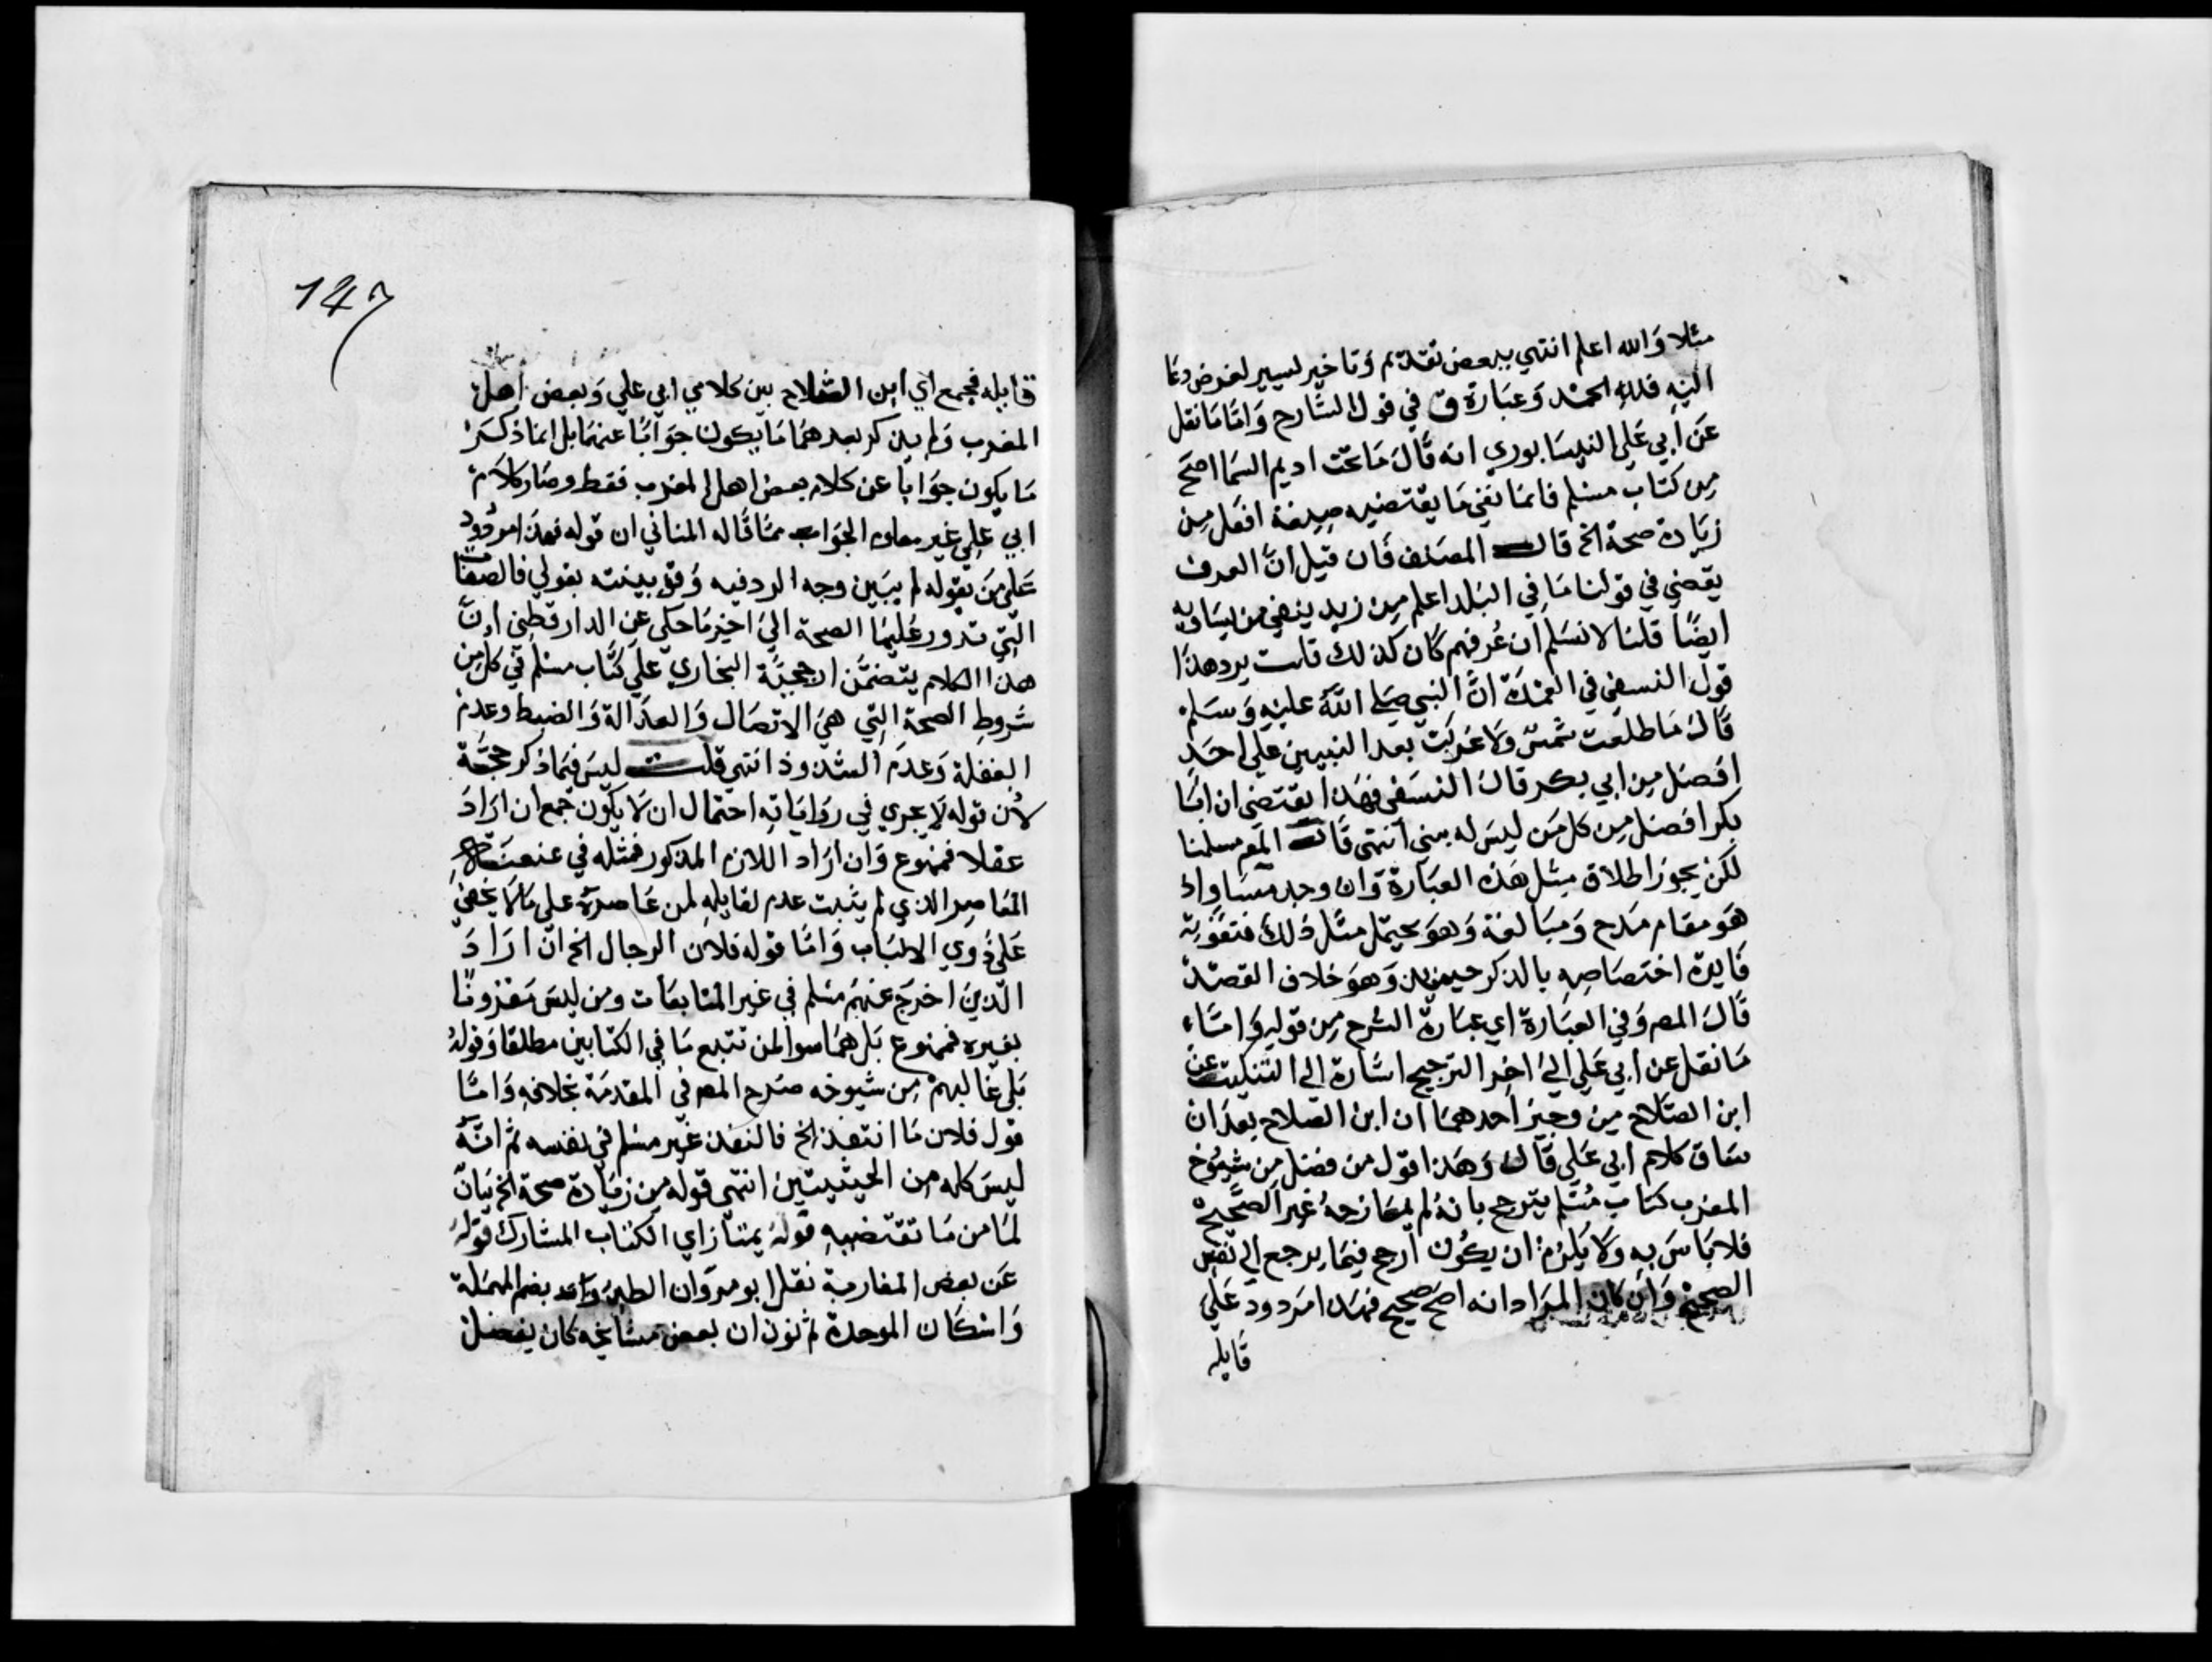 مثلا والله اعلم انتهي ببعض تقديم وتاخير يسير لغرض دعا
اليه فلله الحمد وعبارة ق في قول الشارح واما ما نقل
عن ابي علي النيسابوري انه قال ما تحت اديم السما اصح
من كتاب مسلم فانما نفي ما يقتضيه صيغة افعل من
زيادة صحة الخ قال المصنف فان قيل ان العرف
يقضي في قولنا ما في البلد اعلم من زيد ينفي من يساويه
ايضا قلنا لا نسلم ان عرفهم كان كذلك قلت يرد هذا
قول النسفي في العمدة ان النبي صلي الله عليه وسلم
قال ما طلعت شمس ولا غربت بعد النبيين علي احد
افضل من ابي بكر قال النسفي فهذا يقتضي ان ابا
بكر افضل من كل من ليس له بنبي انتهي قال المص سلمنا
لكن يجوز اطلاق مثل هذه العبارة وان وجد مساو اذ
هو مقام مدح ومبالغة وهو يحتمل مثل ذلك فتفوته
فايدة اختصاصه بالذكر حينيذ وهو خلاف القصد
قال المص وفي العبارة اي عبارة الشرح من قوله واما
ما نقل عن ابي علي الي اخر الترجيح اشارة الي التنكيت عن
ابن الصلاح من وجهين احدهما ان ابن الصلاح بعد ان
ساق كلام ابي علي قال وهذا قول من فضل من شيوخ
المغرب كتاب مسلم يترجح بانه لم يمازجه غير الصحيح
فلا باس به ولا يلزم ان يكون ارجح فيما يرجع الي نفس
الصحيح وان كان المراد انه اصح صحيح فهذا مردود علي
قايله
147
قايله فجمع اي ابن الصلاح بين كلامي ابي علي وبعض اهل
المغرب ولم يذكر بعدهما ما يكون جوابا عنهما بل انما ذكر
ما يكون جوابا عن كلام بعض اهل المغرب فقط وصار كلام
ابي علي غير الجواب عما قاله الثاني ان قوله فهذا مردود
علي من يقوله لم يبين وجه الرد فيه وقد بينته بقولي فالصفات
التي تدور عليها الصحة الي اخر ما حكي عن الدارقطني ان
هذا الكلام يتضمن ارجحية البخاري علي كتاب مسلم في كل من
شروط الصحة التي هي الاتصال والعدالة والضبط وعدم
الغفلة وعدم الشذوذ انتهي قلت ليس فيما ذكر حجة
لان قوله لا يجري في رواياته احتمال ان لا يكون جمع ان اراد
عقلا فممنوع وان اراد اللازم المذكور فمثله في عنعنة
المعاصر الذي لم يثبت عدم لقايله لمن عاصره علي ما لا يخفي
علي ذوي الالباب واما قوله فلان الرجال الخ ان اراد
الذين اخرج عنهم مسلم في غير المتابعات ومن ليس مقرونا
بغيره فممنوع بل هما سوا لمن تتبع ما في الكتابين مطلقا وقوله
بل غالبهم من شيوخه صرح المص في المقدمة بخلافه واما
قول فلان ما انتقد الخ فالنقد غير مسلم في نفسه ثم انه
ليس كله من الحيثيتين انتهي قوله من زيادة صحة الخ بيان
لما من ما تقتضيه قوله يمتاز اي الكتاب المشارك قوله
عن بعض المغاربة نقل ابو مروان الطبني بضم المهملة
واسكان الموحدة ثم نون ان بعض مشايخه كان يفضل